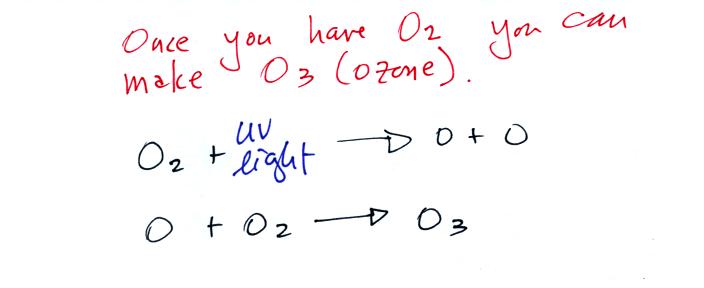 Once you have O2 you can
make O3 (ozone).
O2 + UV light → O + O
O + O2 → O3